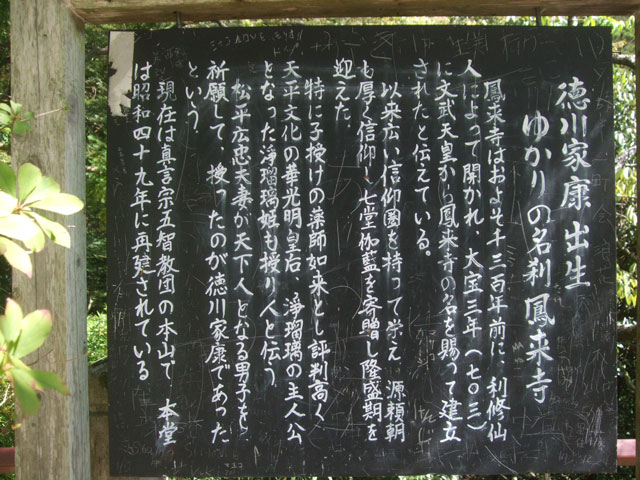 徳川家康出生
ゆかりの名刹鳳来寺
鳳来寺はおよそ千三百年前に 利修仙
人によって開かれ、大宝三年(七〇三)
に文武天皇から鳳来寺の名を賜って建立
されたと伝えている。
以来広い信仰圏を持って栄え 源頼朝
も厚く信仰し 七堂伽藍を寄贈し隆盛期を
迎えた
特に子授けの薬師如来とし評判高く
天平文化の華光明皇后 浄瑠璃の主人公
となった浄瑠璃姫も授り人と伝う
松平広忠夫妻が天下人となる男子を
祈願して、授ったのが徳川家康であった
という
現在は真言宗五智教団の本山で 本堂
は昭和四十九年に再建されている